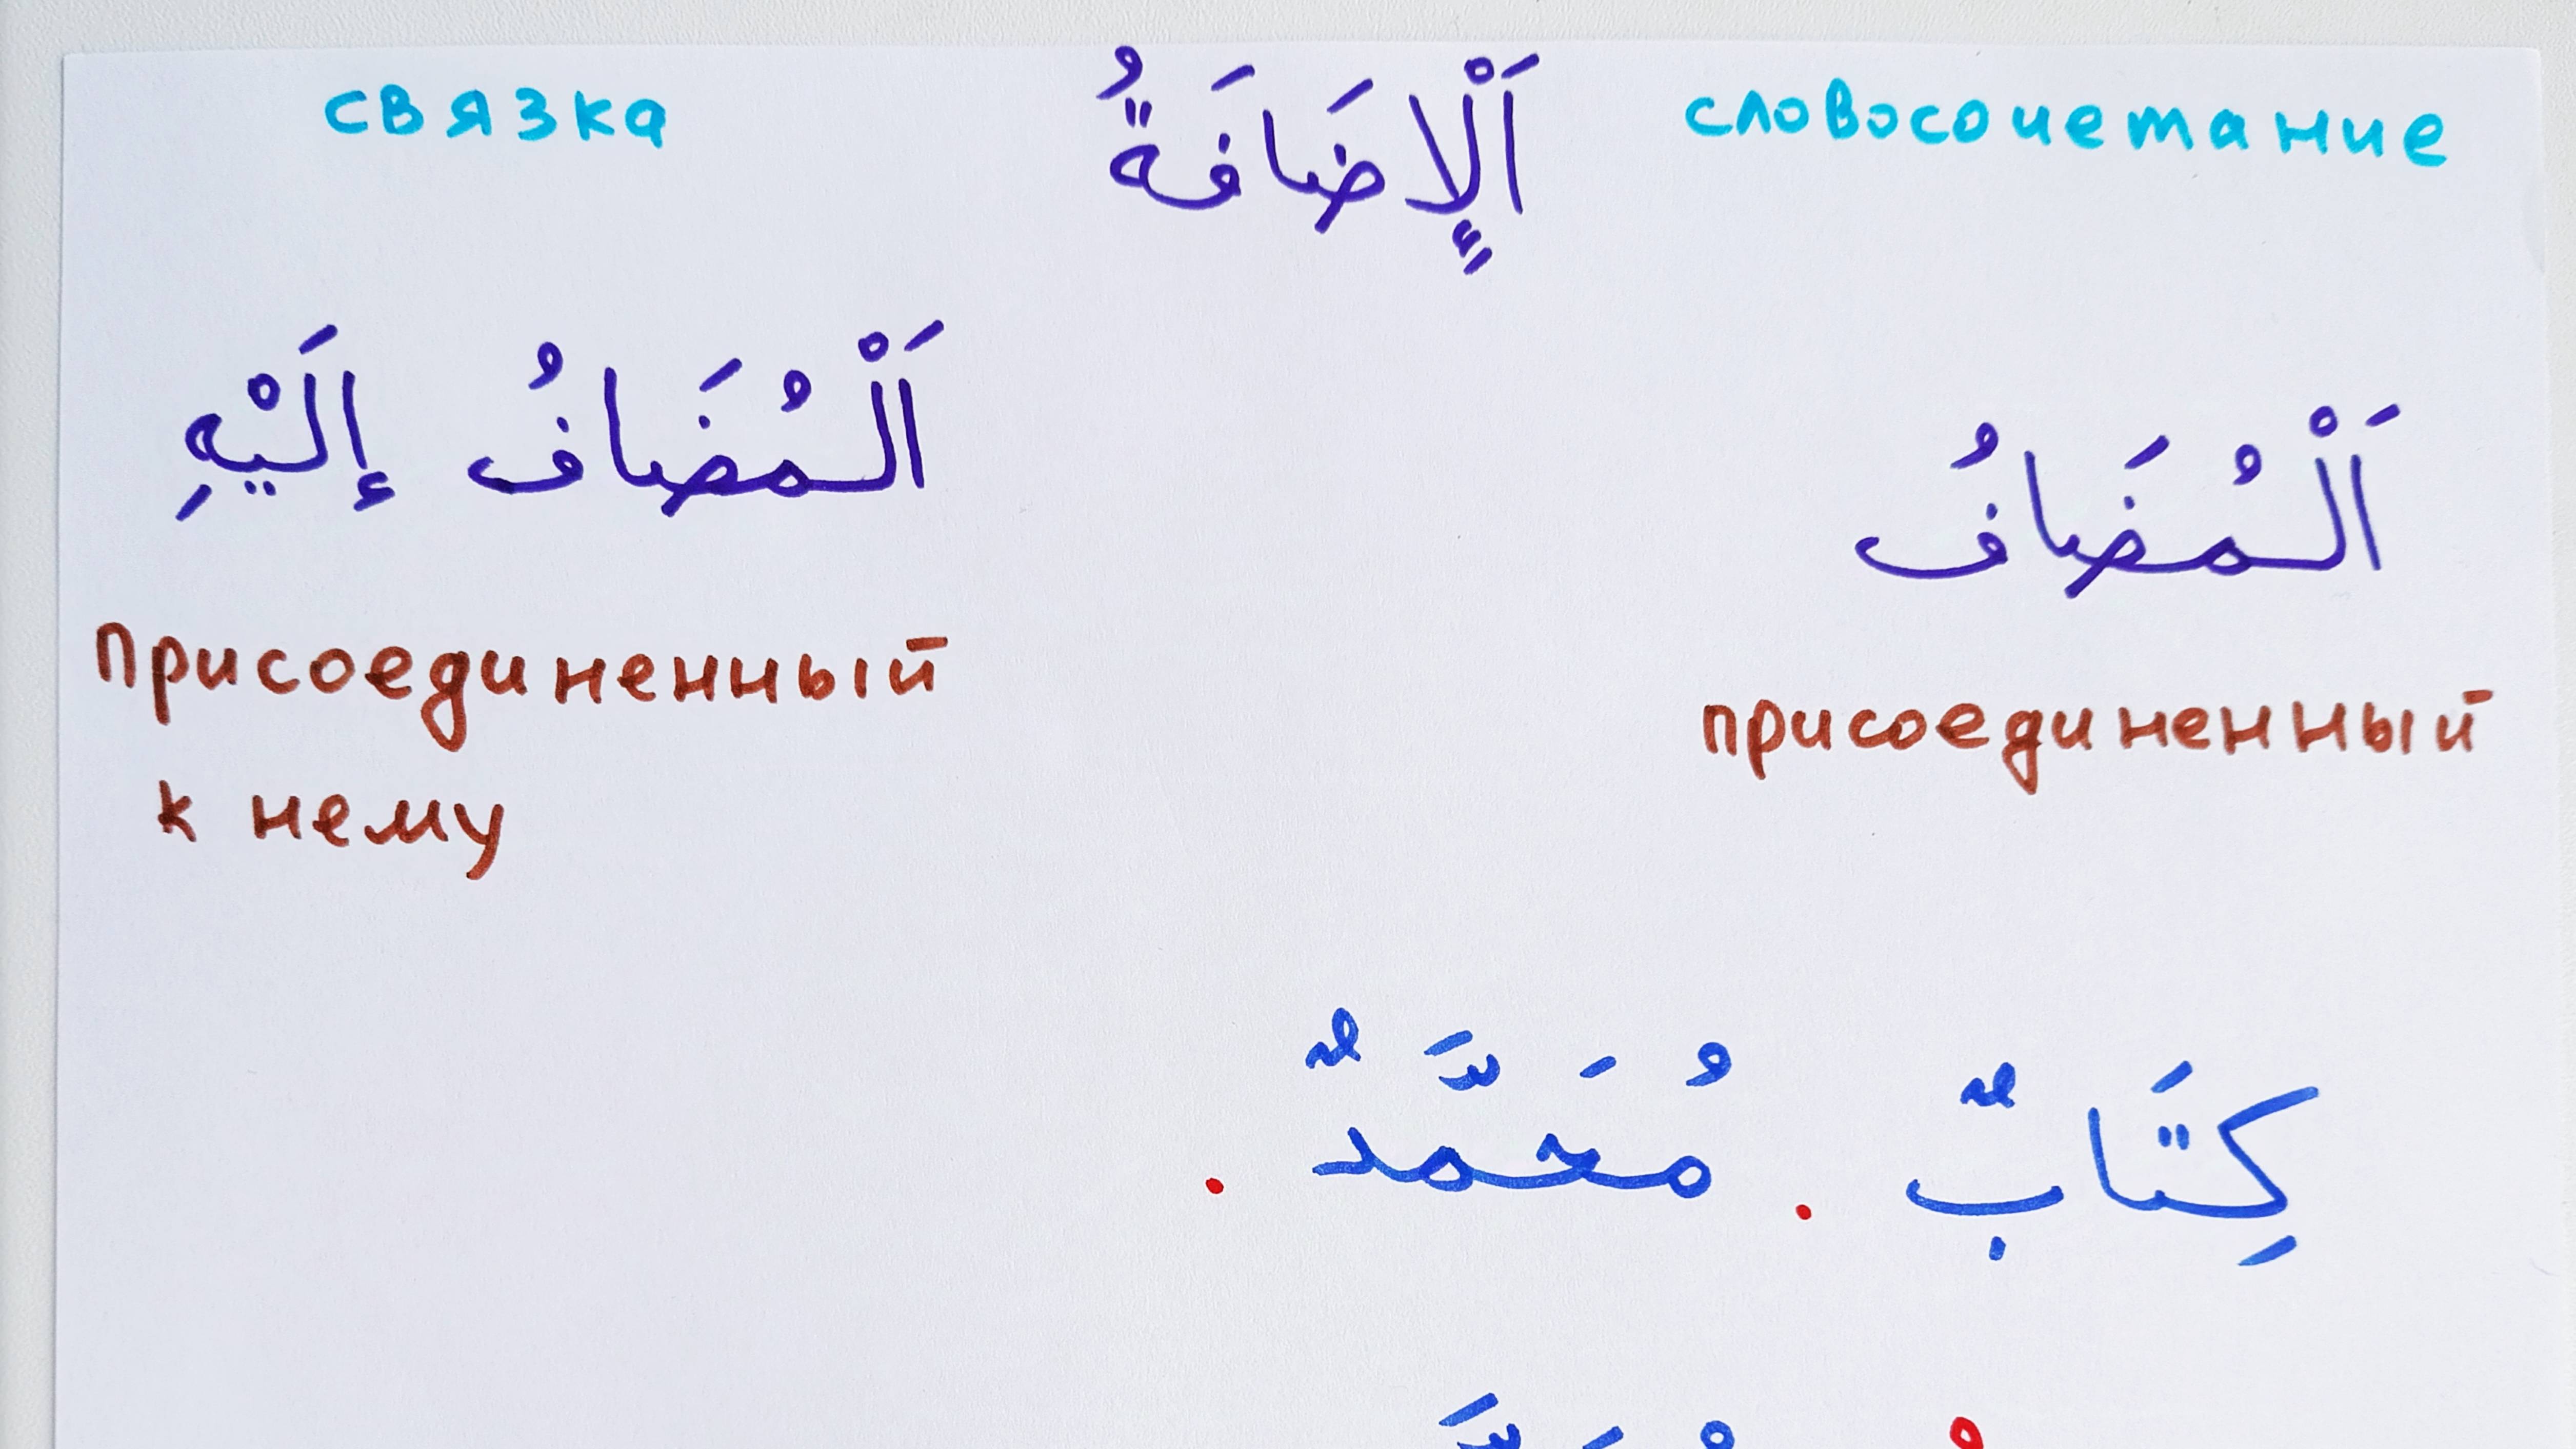 связка اَلْإِضَافَةُ словосочетание
اَلْمُضَافُ اَلْمُضَافُ إِلَيْهِ
присоединенный присоединенный
к нему
كِتَابٌ . مُحَمَّدٌ .